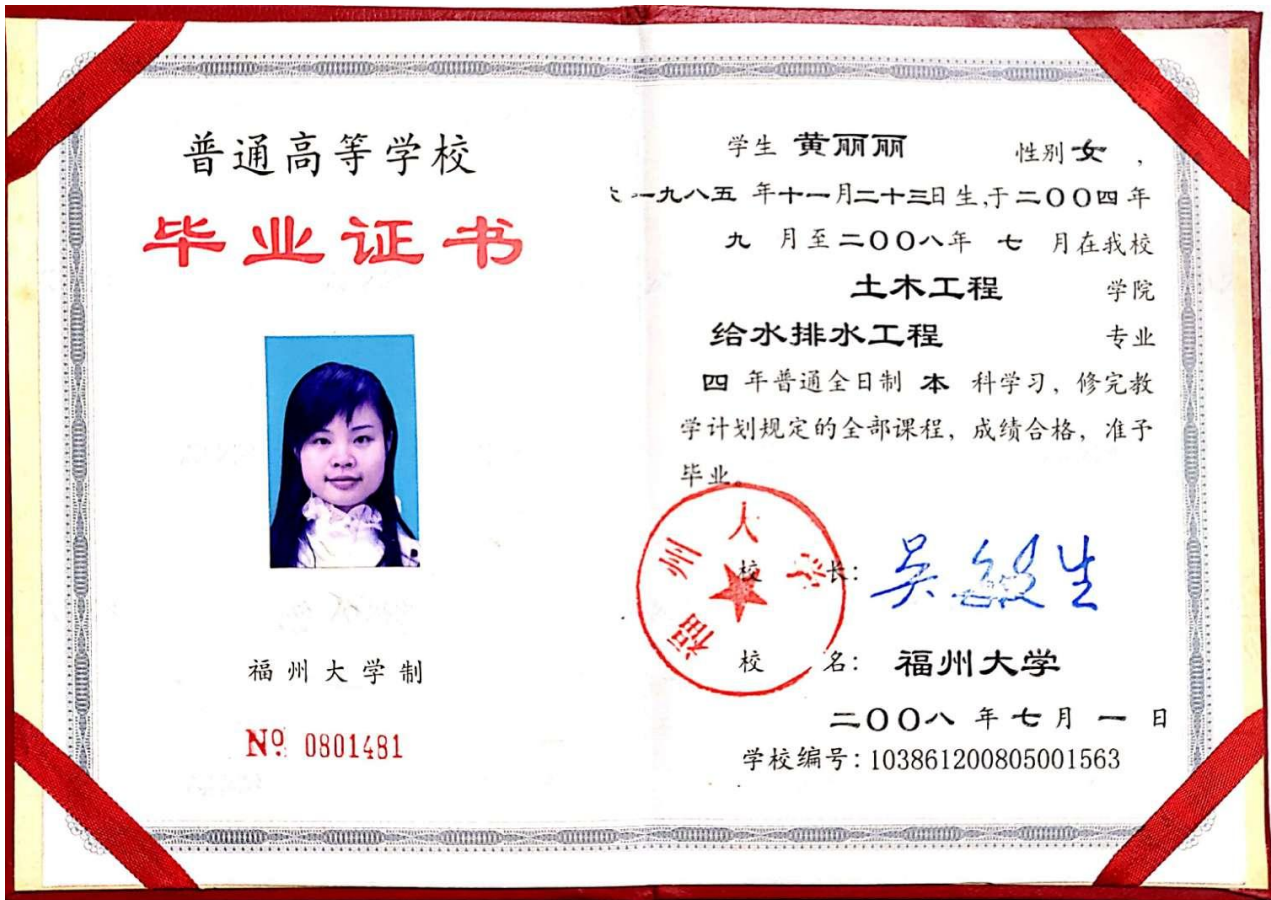 普通高等学校
毕业证书
福州大学制
Nº 0801481
学生 黄丽丽 性别 女 ,
一九八五 年十一月二十三日生,于二〇〇四年
九 月至二〇〇八年 七 月在我校
土木工程 学院
给水排水工程 专业
四 年普通全日制 本 科学习，修完教
学计划规定的全部课程，成绩合格，准予
毕业。
校 长: 吴敏生
校 名: 福州大学
二〇〇八 年七月 一 日
学校编号:103861200805001563
福州大